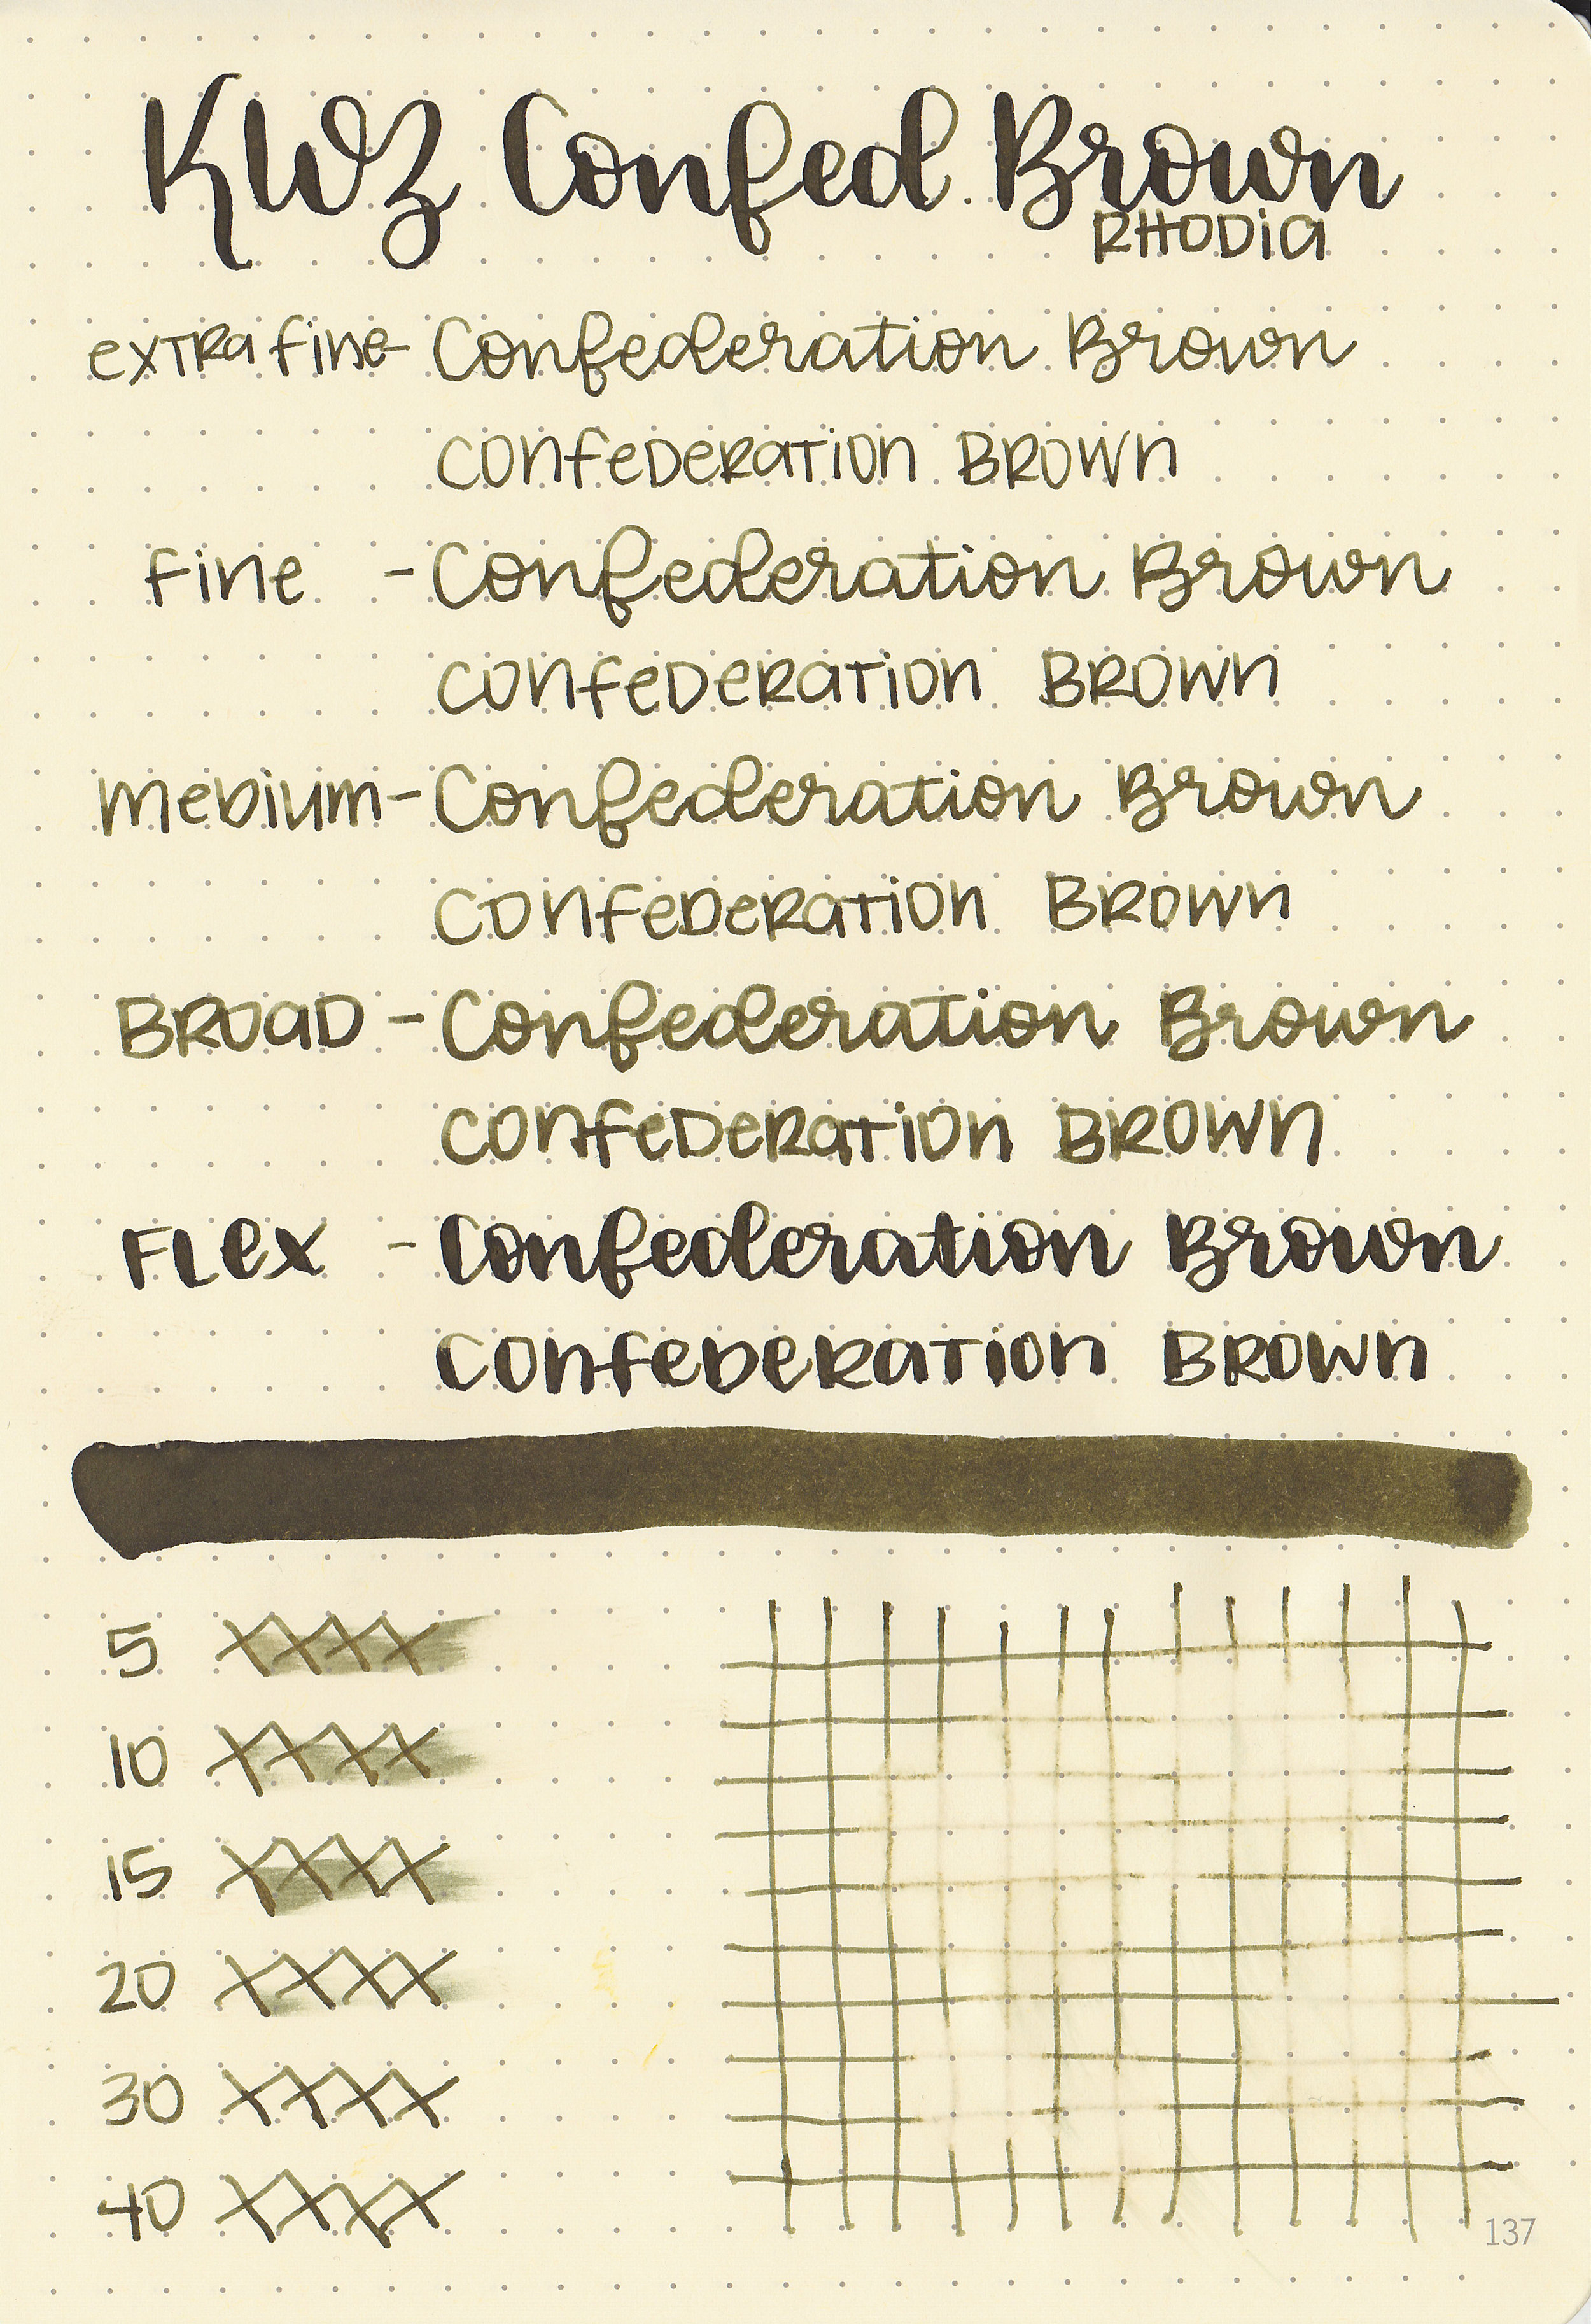 KWZ Confed. Brown
RHODIA
extra fine - Confederation Brown
Confederation Brown
fine - Confederation Brown
Confederation Brown
Medium - Confederation Brown
Confederation Brown
BROAD - Confederation Brown
Confederation Brown
FLex - Confederation Brown
Confederation Brown
5 XXXX
10 XXXX
15 XXXX
20 XXXX
30 XXXX
40 XXXX
137